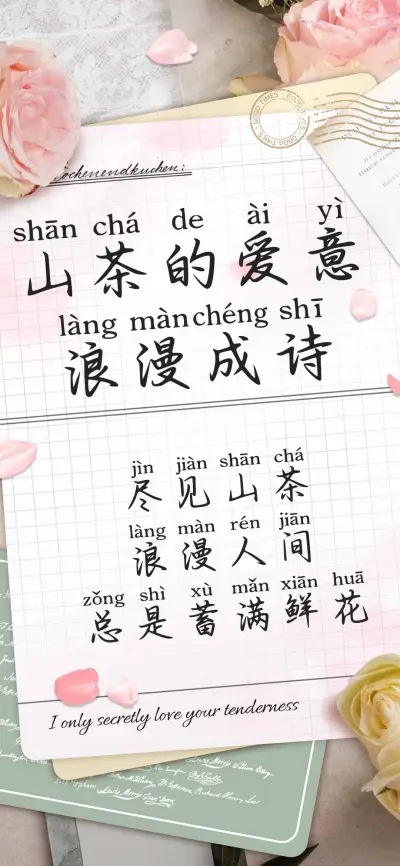 GOOD TIMES
Wochenendkuchen:
shān chá de ài yì
山茶的爱意
làng màn chéng shī
浪漫成诗
jìn jiàn shān chá
尽见山茶
làng màn rén jiān
浪漫人间
zǒng shì xù mǎn xiān huā
总是蓄满鲜花
I only secretly love your tenderness